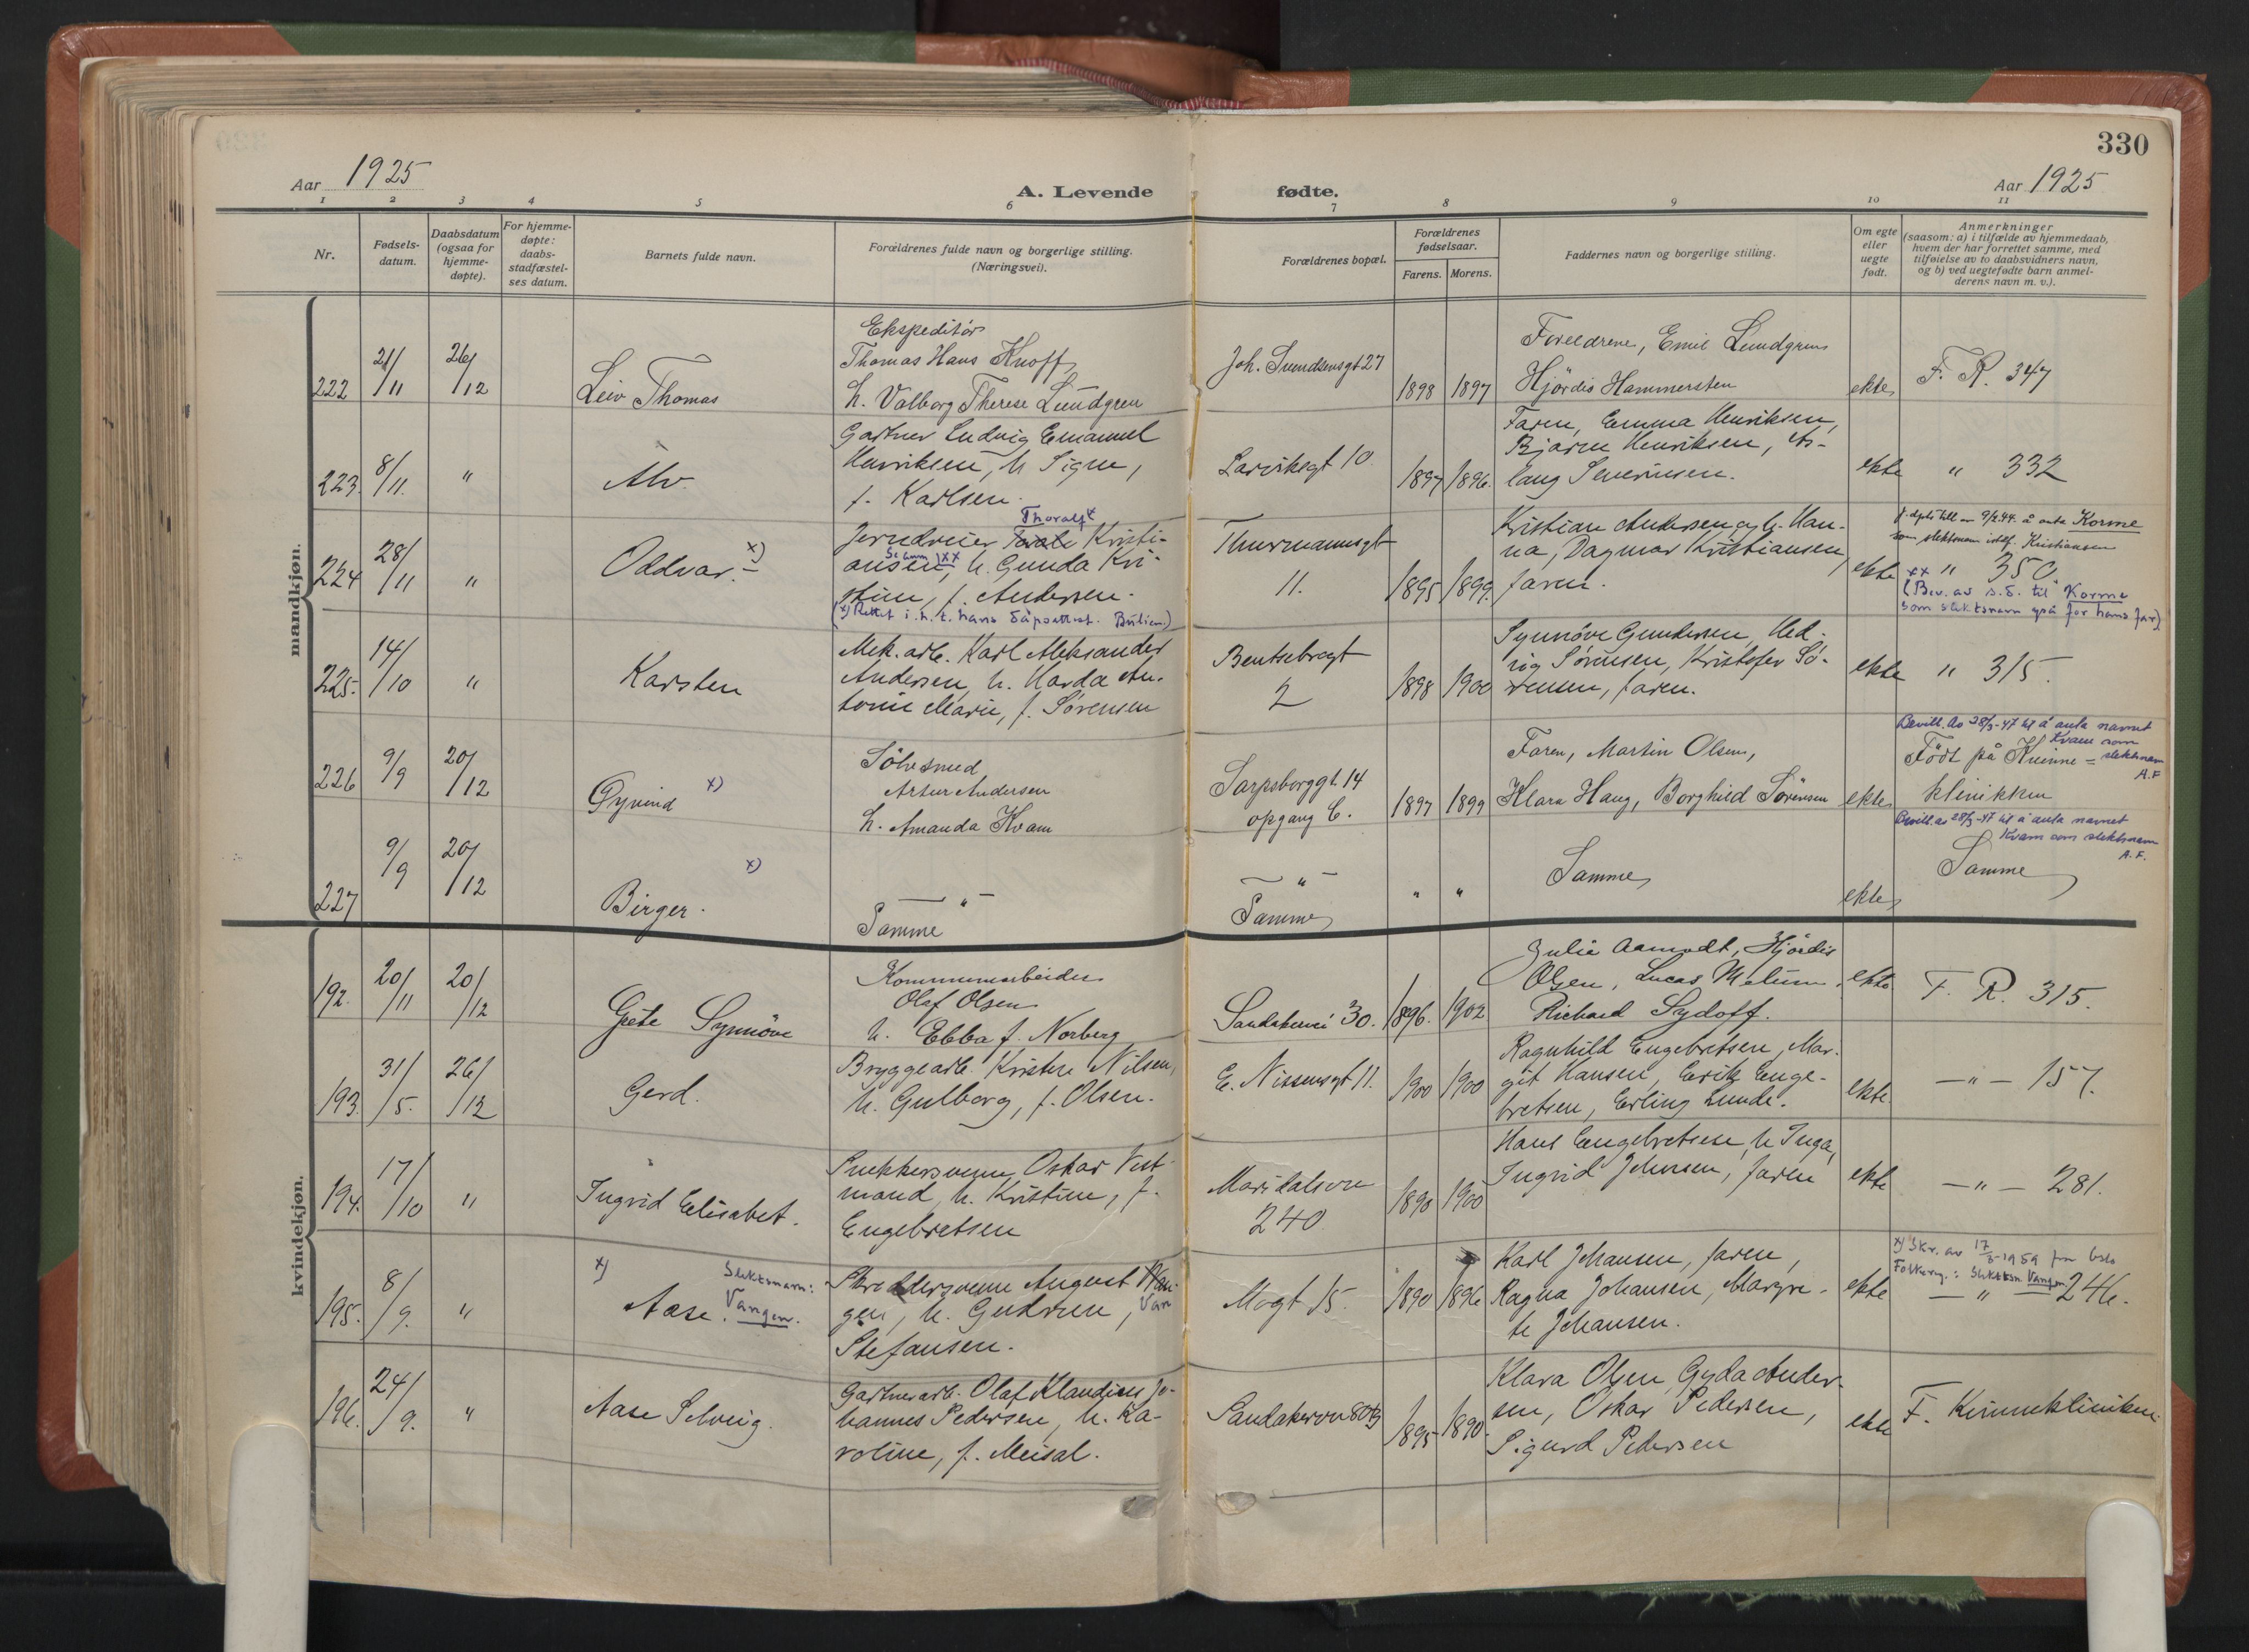 330
Aar 1925
A. Levende fødte.
Aar 1925
1 2 3 4 5 6 7 8 9 10 11
Nr.
Fødsels-
datum.
Daabsdatum
(ogsaa for
hjemme-
døpte).
For hjemme-
døpte:
daabs-
stadfæstel-
ses datum.
Barnets fulde navn.
Forældrenes fulde navn og borgerlige stilling.
(Næringsvei).
Forældrenes bopæl.
Forældrenes
fødselsaar.
Farens. Morens.
Faddernes navn og borgerlige stilling.
Om egte
eller
uegte
født.
Anmerkninger
(saasom: a) i tilfælde av hjemmedaab,
hvem der har forrettet samme, med
tilføielse av to daabsvidners navn,
og b) ved uegtefødte barn anmel-
derens navn m. v.).
mandkjøn.
222
21/11
26/12
Leiv Thomas
Ekspeditör
Thomas Hans Knoff
h. Valborg Therese Lundgren
Joh. Svendsensgt 27
1898 1897
Foreldrene, Emil Lundgren
Hjördis Hammersten
ekte
F. R. 347
223.
8/11.
"
Alv.
Gartner Ludvig Emanuel
Henriksen, h Signe,
f. Karlsen.
Larviksgt 10.
1897 1896.
Faren, Emma Henriksen,
Bjarne Henriksen, As-
laug Severinsen.
ekte
" 332
224
28/11
"
Oddvar. x)
Thoralf
Jerndreier Kristi-
ansen, xx h. Gunda Kri-
stine, f. Andersen.
(x) Rettet i.h.t. hans dåpsattest.
Thurmannsgt
11.
1895 1899.
Kristian Andersen og h. Han-
na, Dagmar Kristiansen,
faren.
ekte
9/2.44. å anta Korme
som slektsnavn istf. Kristiansen
xx " 350
(Bev. av s.d. til Korme
som slektsnavn også for hans far)
225.
14/10
"
Karsten
Mek. arb. Karl Aleksander
Andersen, h. Harda An-
tonie Marie, f. Sørensen
Bentsebrogt
2
1898 1900
Synnöve Gundersen, Hed-
vig Sørensen, Kristofer Sö-
rensen, faren.
ekte
" 315.
226
9/9
20/12
Øyvind x)
Sölvsmed
Artur Andersen
h. Amanda Kvam
Sarpsborggt. 14
opgang C.
1897 1899
Faren, Martin Olsen,
Klara Haug, Borghild Sörensen
ekte
Bevill. av 28/3-47 til å anta navnet
Kvam som
slektsnavn
A.F
Födt på Kvinne-
klinikken
227
9/9
20/12
Birger. x)
— " —
Samme
— " —
Samme
" "
Samme
ekte
Bevill. av 28/3-47 til å anta navnet
Kvam som slektsnavn
A.F.
Samme
kvindekjøn.
192.
20/11
20/12
Grete Synnöve
Kommunearbeider
Olaf Olsen
h. Ebba f. Norberg
Sandakervei 30.
1896. 1902
Julie Aamodt, Hjördis
Olsen, Lucas Melum,
Richard Sydoff.
ekte
F. R. 315.
193.
31/5.
26/12
Gerd.
Bryggearb. Kristen Nilsen,
h. Gulborg, f. Olsen.
E. Nissensgt 11.
1900 1900
Ragnhild Engebretsen, Mar-
git Hansen, Erik Enge-
bretsen, Erling Lunde.
ekte
— " — 157.
194.
17/10
"
Ingrid Elisabet.
Snekkersvenn Oskar Vest-
mand, h. Kristine, f.
Engebretsen
Maridalsvn
240
1890 1900
Hans Engebretsen, h Inga,
Ingrid Johnsen, faren
ekte
— " — 281.
195.
8/9.
"
x)
Aase.
Slektsnavn:
Vangen.
Skreddersvenn August Wan-
gen, h. Gudrun,
Stefansen.
Mogt 15.
1890 1896
Karl Johansen, faren,
Ragna Johansen, Margre-
te Johansen.
ekte
x) Skr. av 17/3-1959 fra Oslo
Folkereg.: Slektsn. Vangen
— " — 246.
196.
24/9.
"
Aase Solveig.
Gartnerarb. Olaf Klaudius Jo-
hannes Pedersen, h. Ka-
roline, f. Meisal.
Sandakervn 80
1895 1890
Klara Olsen, Gyda Ander-
sen, Oskar Pedersen,
Sigurd Pedersen
ekte
F. Kvinnekliniken.